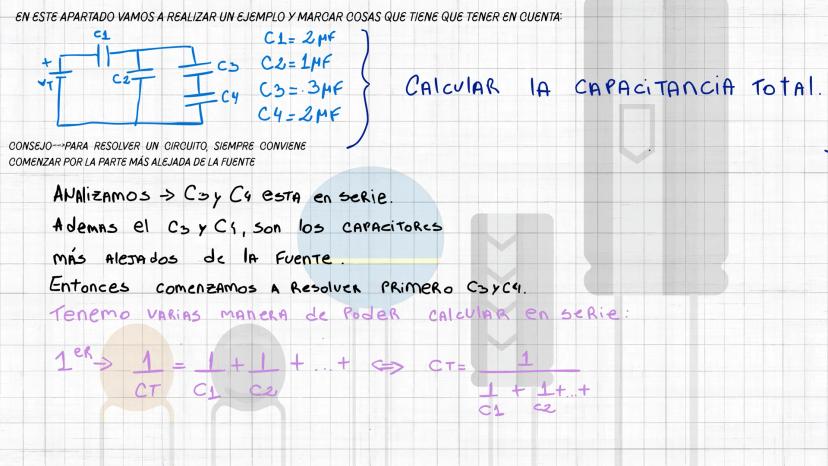 EN ESTE APARTADO VAMOS A REALIZAR UN EJEMPLO Y MARCAR COSAS QUE TIENE QUE TENER EN CUENTA:
C1
+
VT
C2
C3
C4
C1= 2μF
C2= 1μF
C3= 3μF
C4= 2μF
CALCULAR LA CAPACITANCIA TOTAL.
CONSEJO--->PARA RESOLVER UN CIRCUITO, SIEMPRE CONVIENE
COMENZAR POR LA PARTE MÁS ALEJADA DE LA FUENTE
ANALIZAMOS → C3 y C4 ESTA en SERIE.
Ademas el C3 y C4, son los CAPACITORES
más Alejados de la Fuente.
Entonces comenzamos A Resolver PRIMERO C3 y C4.
Tenemo VARIAS MANERA de PODER CALCULAR en SERIE:
1ER → 1/CT = 1/C1 + 1/C2 + ... + ⇔ CT= 1/(1/C1 + 1/C2 +...+